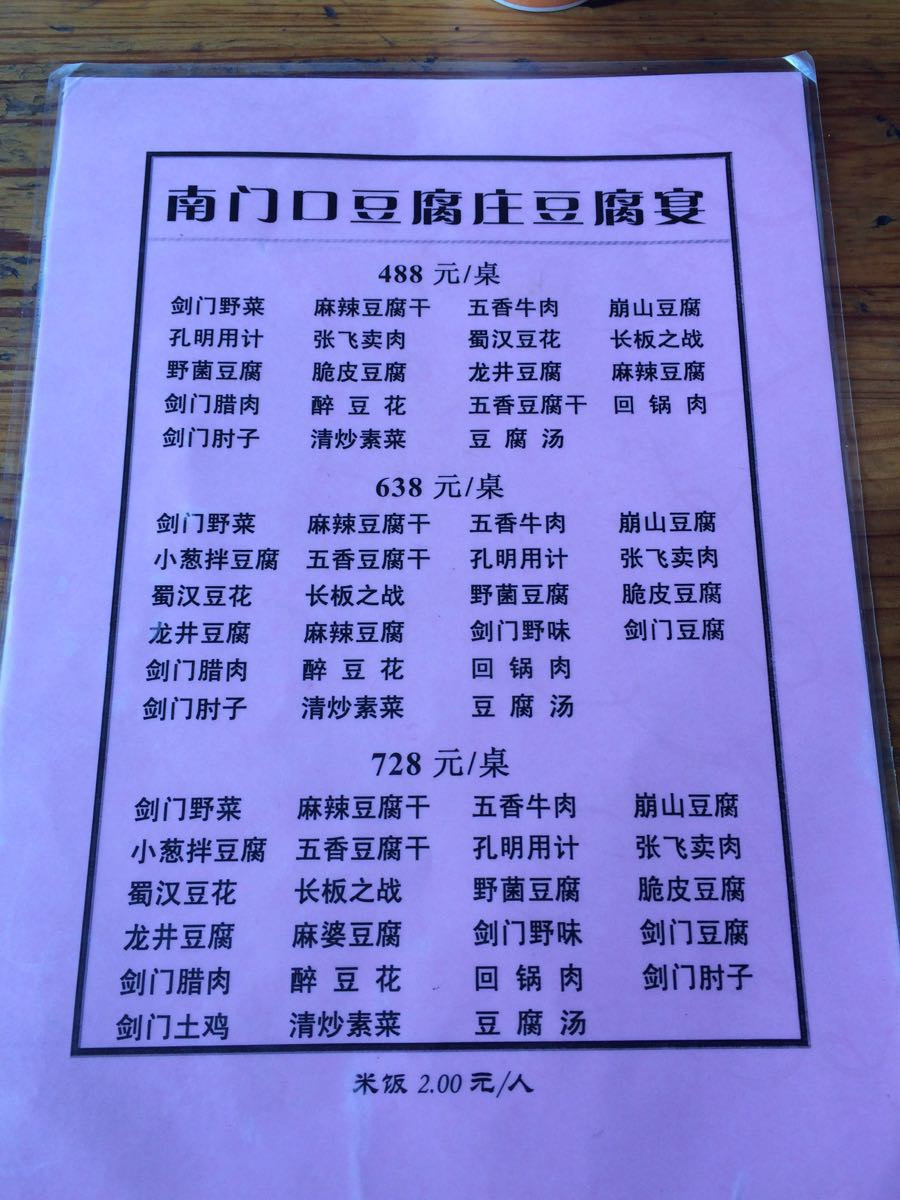 南门口豆腐庄豆腐宴
488 元/桌
剑门野菜 麻辣豆腐干 五香牛肉 崩山豆腐
孔明用计 张飞卖肉 蜀汉豆花 长板之战
野菌豆腐 脆皮豆腐 龙井豆腐 麻辣豆腐
剑门腊肉 醉豆花 五香豆腐干 回锅肉
剑门肘子 清炒素菜 豆腐汤
638 元/桌
剑门野菜 麻辣豆腐干 五香牛肉 崩山豆腐
小葱拌豆腐 五香豆腐干 孔明用计 张飞卖肉
蜀汉豆花 长板之战 野菌豆腐 脆皮豆腐
龙井豆腐 麻辣豆腐 剑门野味 剑门豆腐
剑门腊肉 醉豆花 回锅肉
剑门肘子 清炒素菜 豆腐汤
728 元/桌
剑门野菜 麻辣豆腐干 五香牛肉 崩山豆腐
小葱拌豆腐 五香豆腐干 孔明用计 张飞卖肉
蜀汉豆花 长板之战 野菌豆腐 脆皮豆腐
龙井豆腐 麻婆豆腐 剑门野味 剑门豆腐
剑门腊肉 醉豆花 回锅肉 剑门肘子
剑门土鸡 清炒素菜 豆腐汤
米饭 2.00 元/人